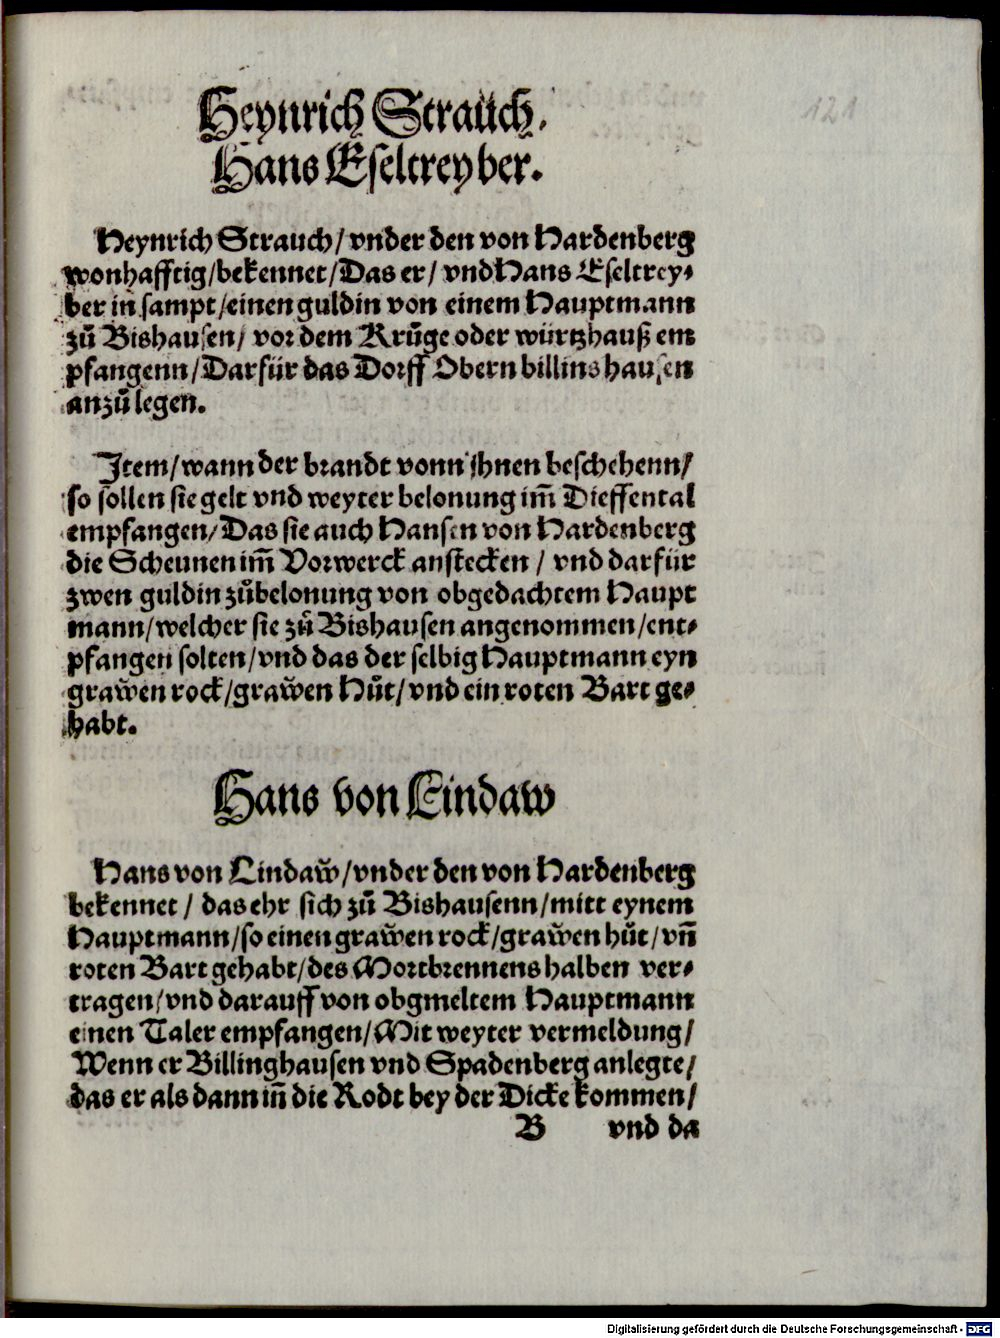 121
Heynrich Strauch.
Hans Eseltreyber.
Heynrich Strauch/ vnder den von Hardenberg
wonhafftig/ bekennet/ Das er/ vnd Hans Eseltrey⸗
ber in sampt/ einen guldin von einem Hauptmann
zů Bishausen/ vor dem Krůge oder würtzhauß em
pfangenn/ Darfür das Dorff Obern billinshausen
anzů legen.
Item/ wann der brandt vonn ihnen beschehenn/
so sollen sie gelt vnd weyter belonung im̃ Dieffental
empfangen/ Das sie auch Hansen von Hardenberg
die Scheunen im̃ Vorwerck anstecken / vnd darfür
zwen guldin zůbelonung von obgedachtem Haupt
mann/ welcher sie zů Bishausen angenommen/ ent⸗
pfangen solten/ vnd das der selbig Hauptmann eyn
graẘen rock/ graẘen Hůt/ vnd ein roten Bart ge⸗
habt.
Hans von Lindaw
Hans von Lindaẘ/ vnder den von Hardenberg
bekennet / das ehr sich zů Bishausenn/ mitt eynem
Hauptmann/ so einen graẘen rock/ graẘen hůt/ vñ
roten Bart gehabt/ des Mortbrennens halben ver⸗
tragen/ vnd darauff von obgmeltem Hauptmann
einen Taler empfangen/ Mit weyter vermeldung/
Wenn er Billinghausen vnd Spadenberg anlegte/
das er als dann iñ die Rodt bey der Dicke kommen/
B vnd da
Digitalisierung gefördert durch die Deutsche Forschungsgemeinschaft - DFG